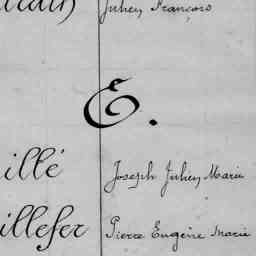 Julien François
E.
illé Joseph Julien Marie
illefer Pierre Eugène Marie